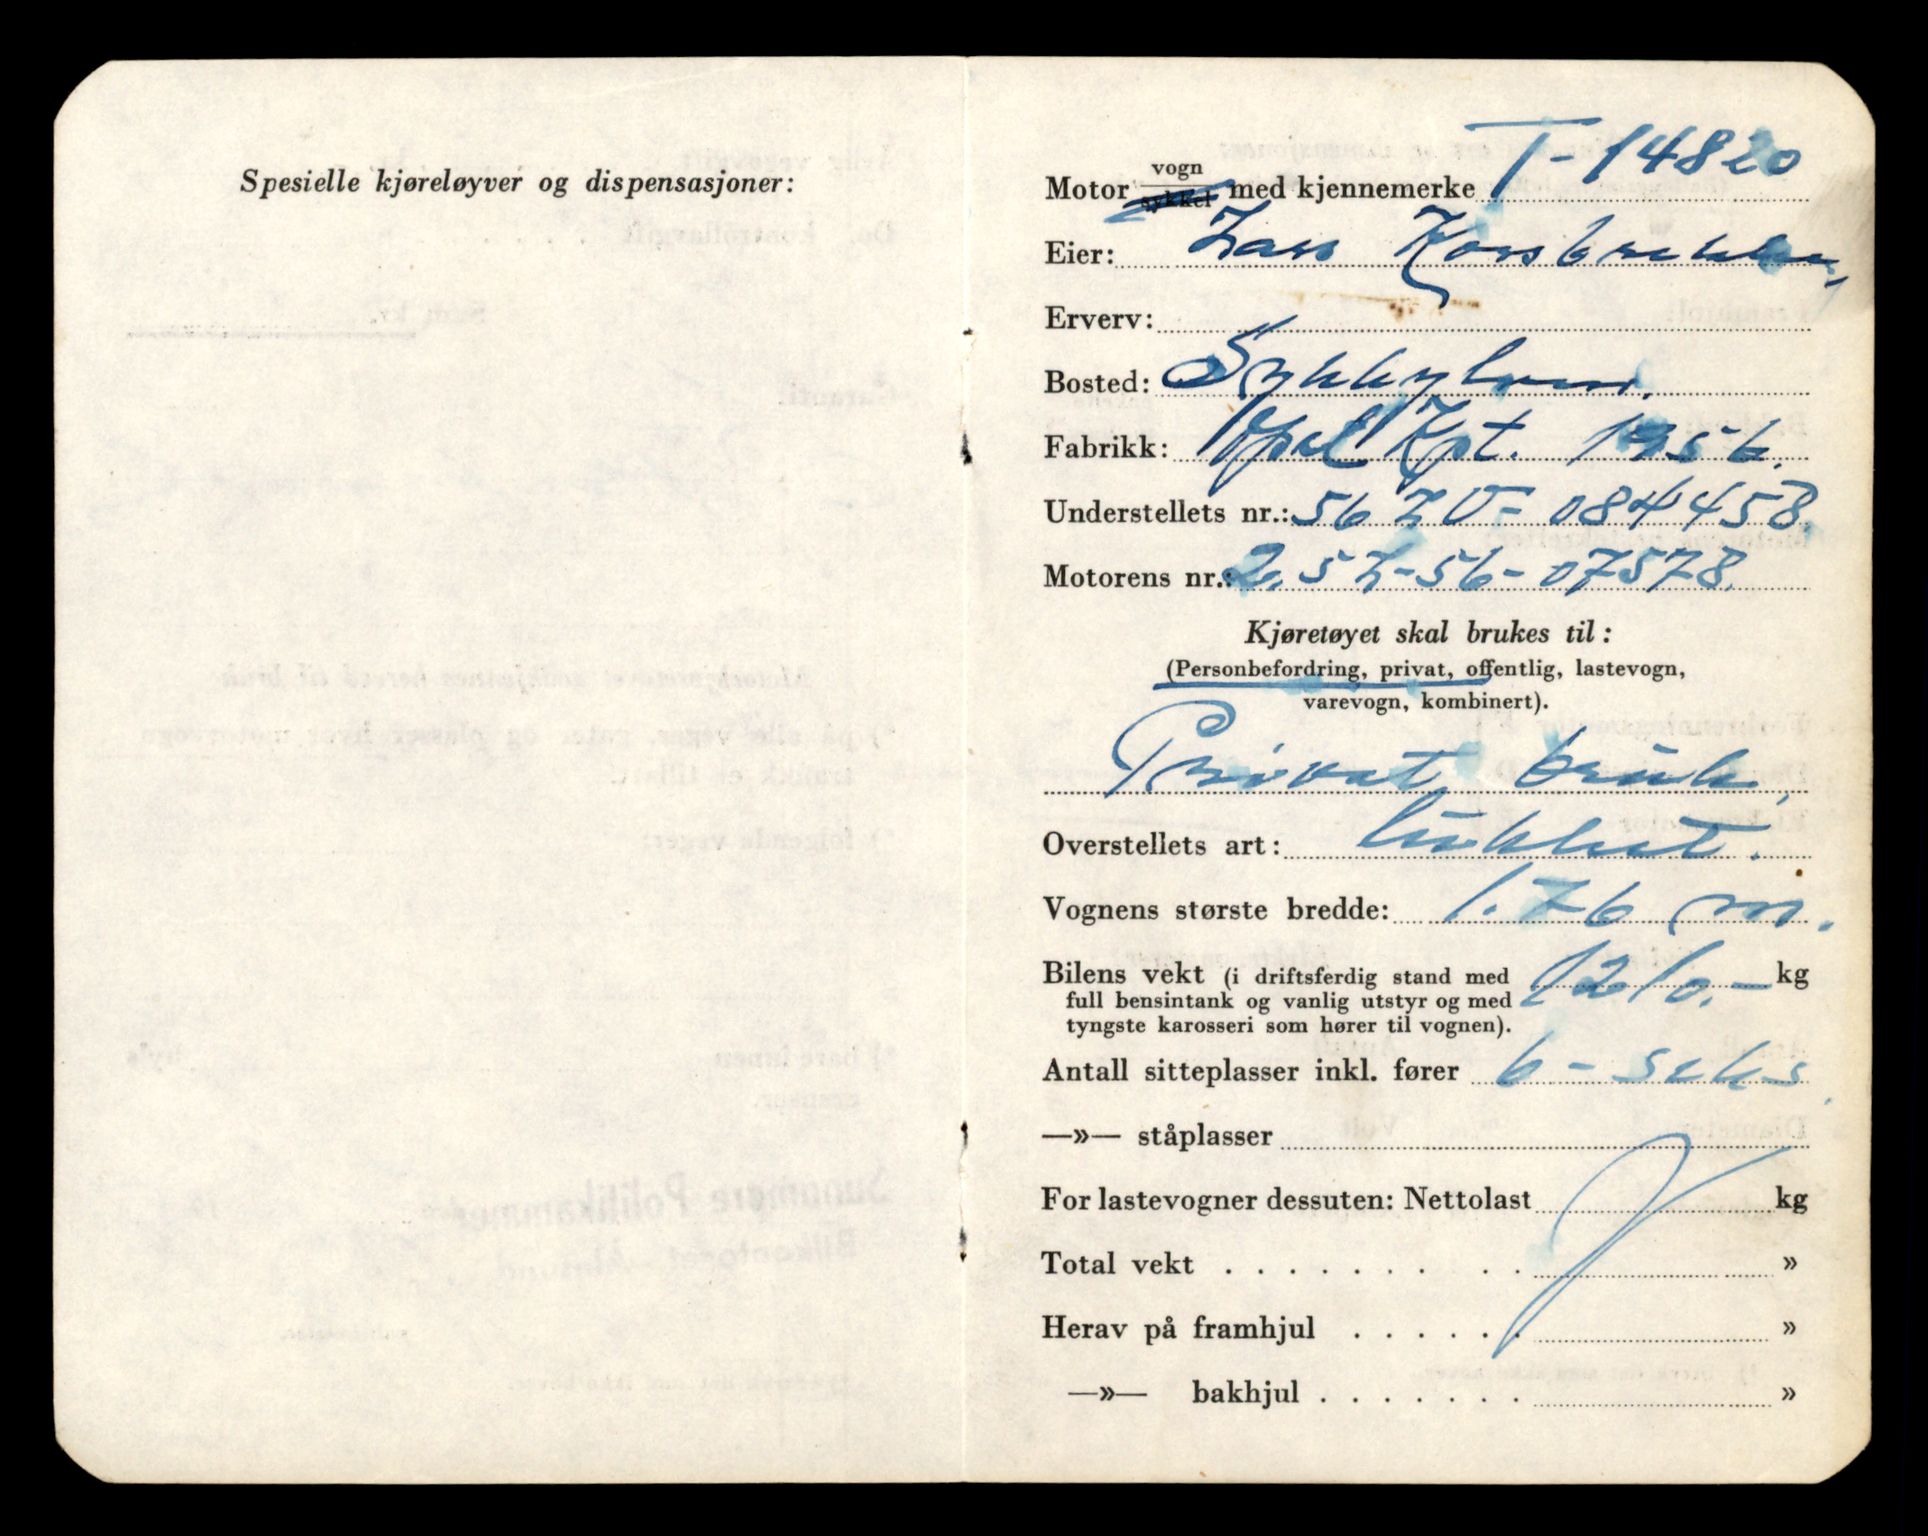 Spesielle kjøreløyver og dispensasjoner:
Motor vogn sykkel med kjennemerke T-14820
Eier: Lars Korsbrekke,
Erverv:
Bosted: Sykkylven.
Fabrikk: Opel Kpt. 1956.
Understellets nr.: 56 L V- 084458.
Motorens nr.: 2.5 L-56-07578.
Kjøretøyet skal brukes til:
(Personbefordring, privat, offentlig, lastevogn,
varevogn, kombinert).
Privat bruk,
Overstellets art: lukket.
Vognens største bredde: 1.76 m.
Bilens vekt (i driftsferdig stand med 1210.- kg
full bensintank og vanlig utstyr og med
tyngste karosseri som hører til vognen).
Antall sitteplasser inkl. fører 6 - seks.
—»— ståplasser
For lastevogner dessuten: Nettolast kg
Total vekt . . . . . . . . . . »
Herav på framhjul . . . . . . »
—»— bakhjul . . . . . . . »